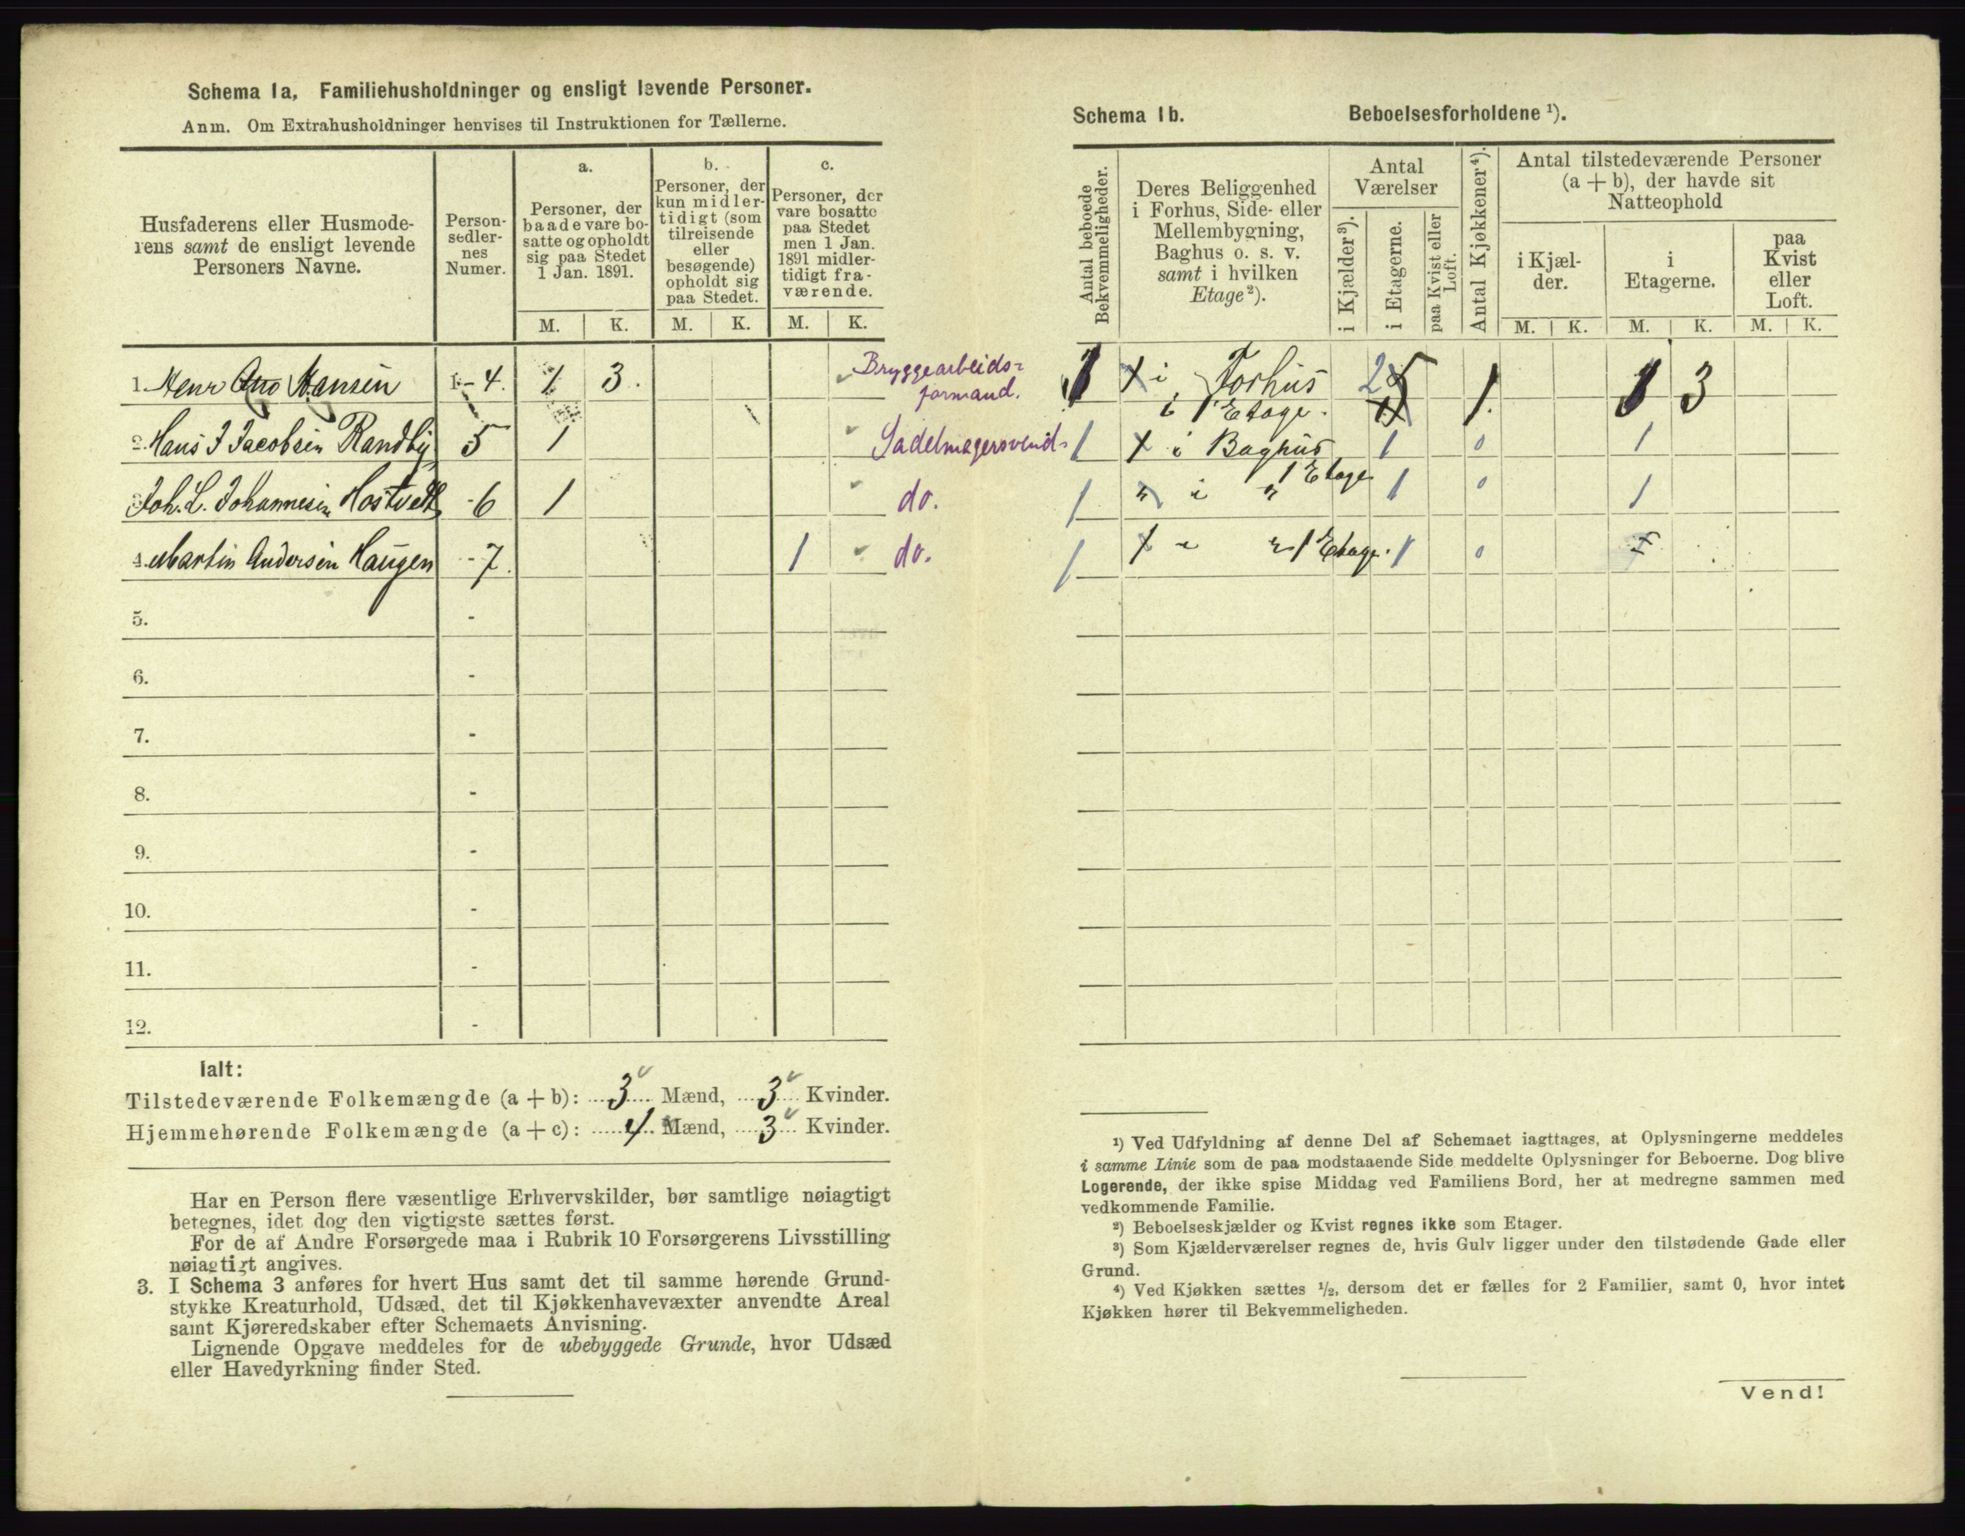 Schema 1a. Familiehusholdninger og ensligt levende Personer.
Anm. Om Extrahusholdninger henvises til Instruktionen for Tællerne.
Husfaderens eller Husmoderens samt de ensligt levende Personers Navne.
Personsedlernes Numer.
a.
Personer, der baade vare bosatte og opholdt sig paa Stedet 1 Jan. 1891.
b.
Personer, der kun midlertidigt (som tilreisende eller besøgende) opholdt sig paa Stedet.
c.
Personer, der vare bosatte paa Stedet men 1 Jan. 1891 midlertidigt fraværende.
M. K. M. K. M. K.
1. Henr Hansen 1-4. 1 3. Bryggearbeids-
formand.
2. Hans J Jacobsen Randby 5 1 Sadelmagersvend
3. Joh. L. Johannesen Hostvedt -6 1 do.
4. Martin Andersen Haugen -7. 1 do.
5. -
6. -
7. -
8. -
9. -
10. -
11. -
12. -
Ialt:
Tilstedeværende Folkemængde (a + b): 3 Mænd, 3 Kvinder.
Hjemmehørende Folkemængde (a + c): 4 Mænd, 3 Kvinder.
Har en Person flere væsentlige Erhvervskilder, bør samtlige nøiagtigt
betegnes, idet dog den vigtigste sættes først.
For de af Andre Forsørgede maa i Rubrik 10 Forsørgerens Livsstilling
nøiagtigt angives.
3. I Schema 3 anføres for hvert Hus samt det til samme hørende Grund-
stykke Kreaturhold, Udsæd, det til Kjøkkenhavevæxter anvendte Areal
samt Kjøreredskaber efter Schemaets Anvisning.
Lignende Opgave meddeles for de ubebyggede Grunde, hvor Udsæd
eller Havedyrkning finder Sted.
Schema 1b. Beboelsesforholdene ¹).
Antal beboede Bekvemmeligheder.
Deres Beliggenhed i Forhus, Side- eller Mellembygning, Baghus o. s. v. samt i hvilken Etage²).
Antal Værelser
i Kjælder³).
i Etagerne.
paa Kvist eller Loft.
Antal Kjøkkener⁴).
Antal tilstedeværende Personer (a + b), der havde sit Natteophold
i Kjælder.
i Etagerne.
paa Kvist eller Loft.
M. K. M. K. M. K.
1 i Forhus 2 1. 1 3
i 1 Etage.
1 i Baghus 1 0 1
1 Etage
1 " i " 1 0 1
1 i " 1 Etage. 1 0
¹) Ved Udfyldning af denne Del af Schemaet iagttages, at Oplysningerne meddeles
i samme Linie som de paa modstaaende Side meddelte Oplysninger for Beboerne. Dog blive
Logerende, der ikke spise Middag ved Familiens Bord, her at medregne sammen med
vedkommende Familie.
²) Beboelseskjælder og Kvist regnes ikke som Etager.
³) Som Kjælderværelser regnes de, hvis Gulv ligger under den tilstødende Gade eller
Grund.
⁴) Ved Kjøkken sættes ½, dersom det er fælles for 2 Familier, samt 0, hvor intet
Kjøkken hører til Bekvemmeligheden.
Vend!